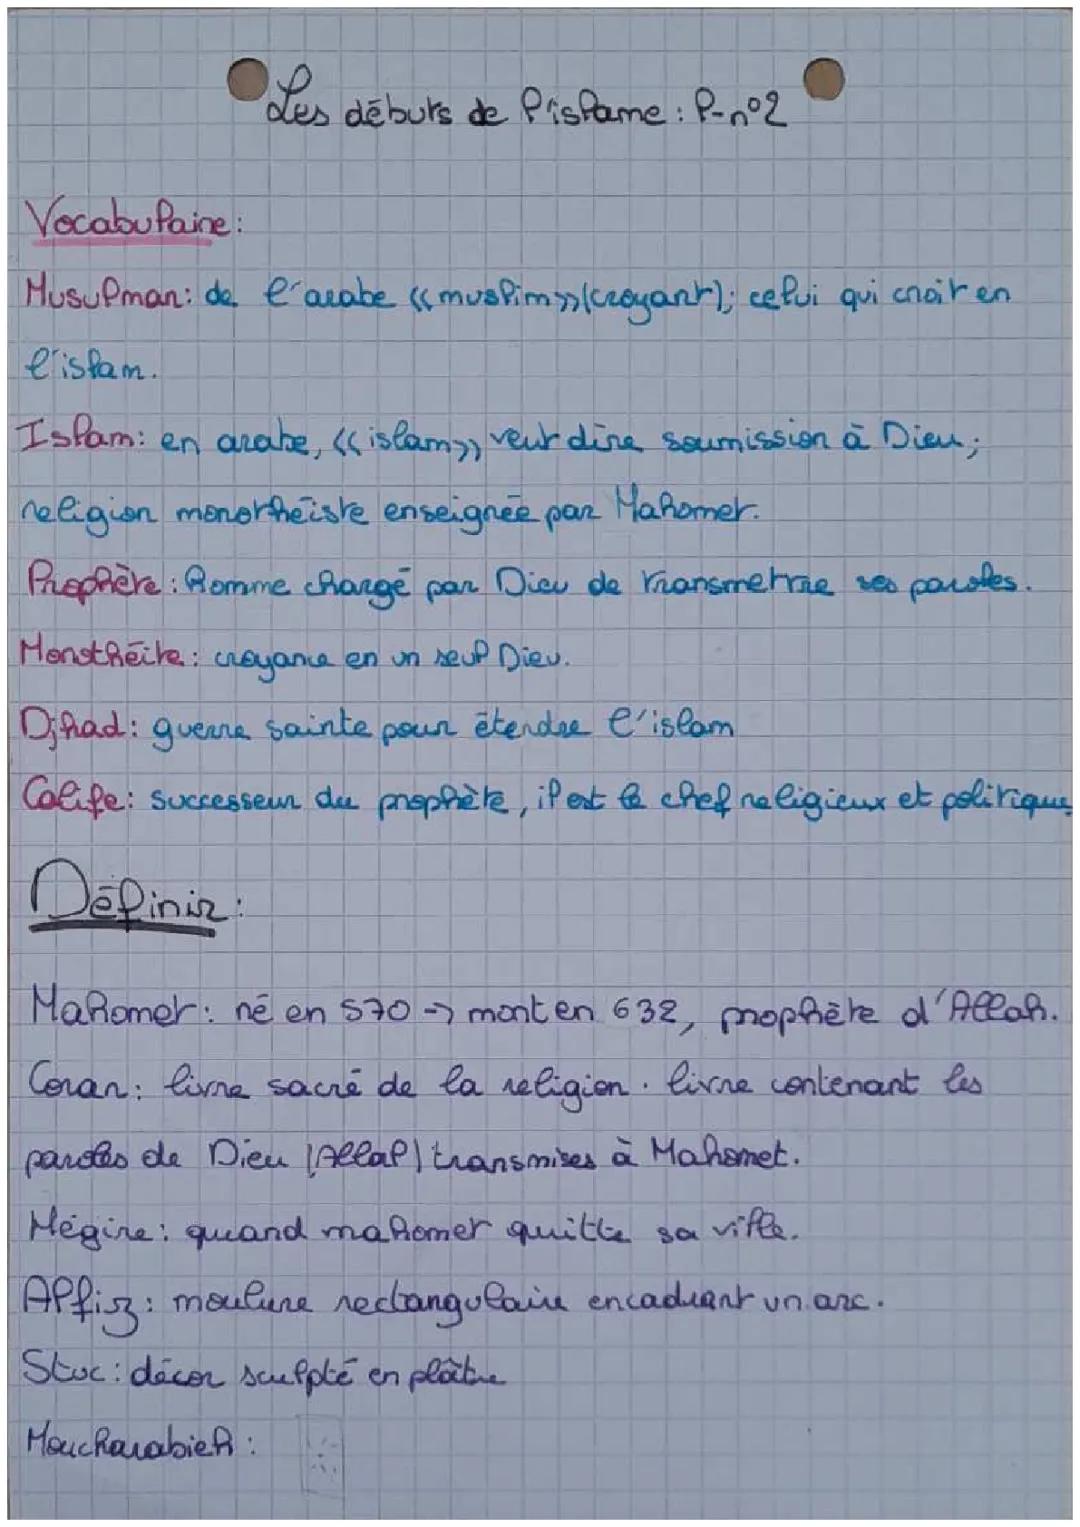 Les débuts de l'islame : P-n°2
Vocabulaire :
Musulman : de l'arabe «muslim» (croyant); celui qui croit en
l'islam.
Islam : en arabe, «islam» veut dire soumission à Dieu;
religion monothéiste enseignée par Mahomet.
Prophète : homme chargé par Dieu de transmettre ses paroles.
Monothéite : croyance en un seul Dieu.
Djhad : guerre sainte pour étendre l'islam
Calife : successeur du prophète, il est le chef religieux et politique
Définir :
Mahomet : né en 570 → mort en 632, prophète d'Allah.
Coran : livre sacré de la religion. livre contenant les
paroles de Dieu (Allah) transmises à Mahomet.
Hégire : quand mahomet quitte sa ville.
Alfiz : moulure rectangulaire encadrant un arc.
Stuc : décor sculpté en plâtre
Moucharabieh :